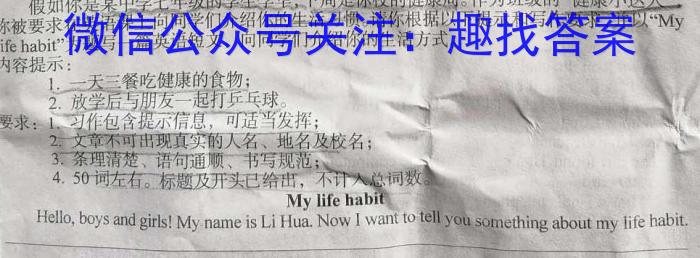 假如你是某中学七年级的学生李华，下周是你校的健康周。作为班级的“健康小达人”
微信公众号关注：趣找答案
“My
life habit”
内容提示：
1. 一天三餐吃健康的食物；
2. 放学后与朋友一起打乒乓球。
要求：1. 习作包含提示信息，可适当发挥；
2. 文章不可出现真实的人名、地名及校名；
3. 条理清楚、语句通顺、书写规范；
4. 50词左右。标题及开头已给出，不计入总词数。
My life habit
Hello, boys and girls! My name is Li Hua. Now I want to tell you something about my life habit.